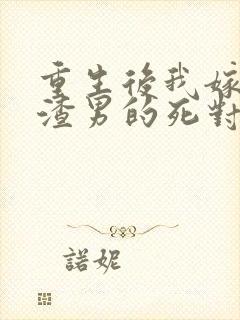 重生後我嫁
渣男的死對
諾妮